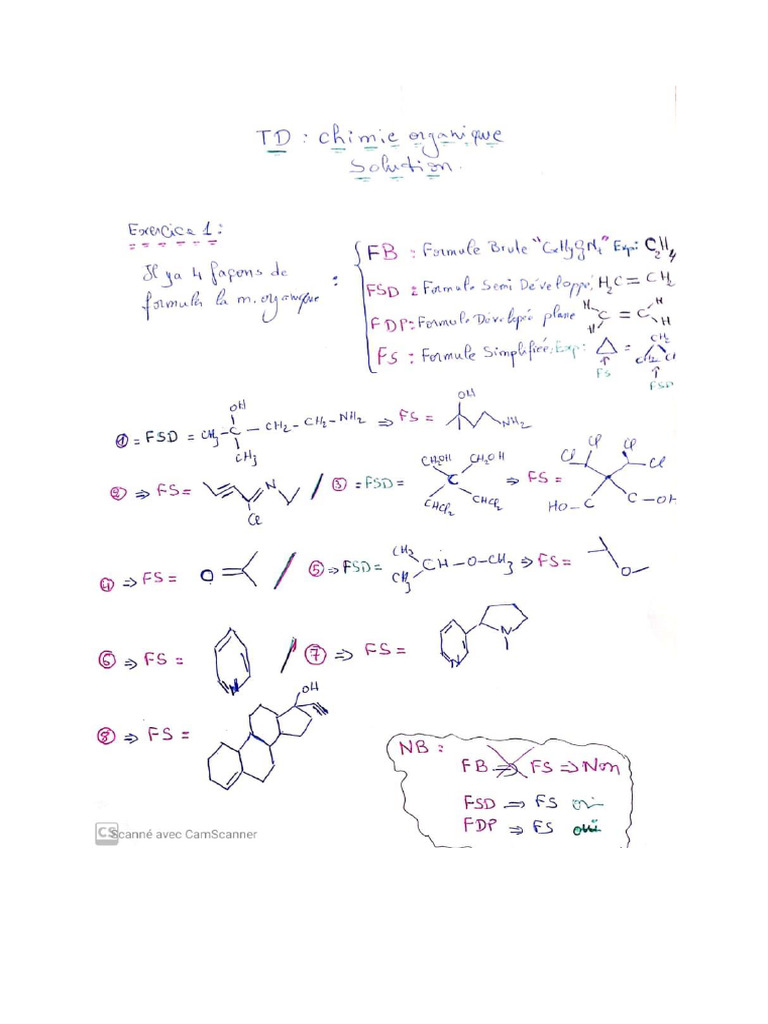 TD : chimie organique
Solution.
Exercice 1 :
Il ya 4 façons de
formuler la m. organique :
FB : Formule Brute "CxHyOzNt" Exp: C2H4
FSD : Formule Semi Développé, H2C = CH2
FDP : Formule Dévelopée plane H H C = C H H
FS : Formule Simplifiée, Exp: △ = CH2 CH2 CH2
FS FSD
① = FSD = CH3 - C - CH2 - CH2 - NH2 ⇒ FS = OH NH2
OH
CH3
② ⇒ FS = N Cl / ③ = FSD = CH2OH CH2OH C CHCl2 CHCl2 ⇒ FS = Cl Cl Cl Cl HO-C C-OH
④ ⇒ FS = O / ⑤ ⇒ FSD = CH3 CH3 CH - O - CH3 ⇒ FS = O
⑥ ⇒ FS = N / ⑦ ⇒ FS = N N
⑧ ⇒ FS = OH
NB :
FB ⇒ FS ⇒ Non
FSD ⇒ FS oui
FDP ⇒ FS oui
CS Scanné avec CamScanner